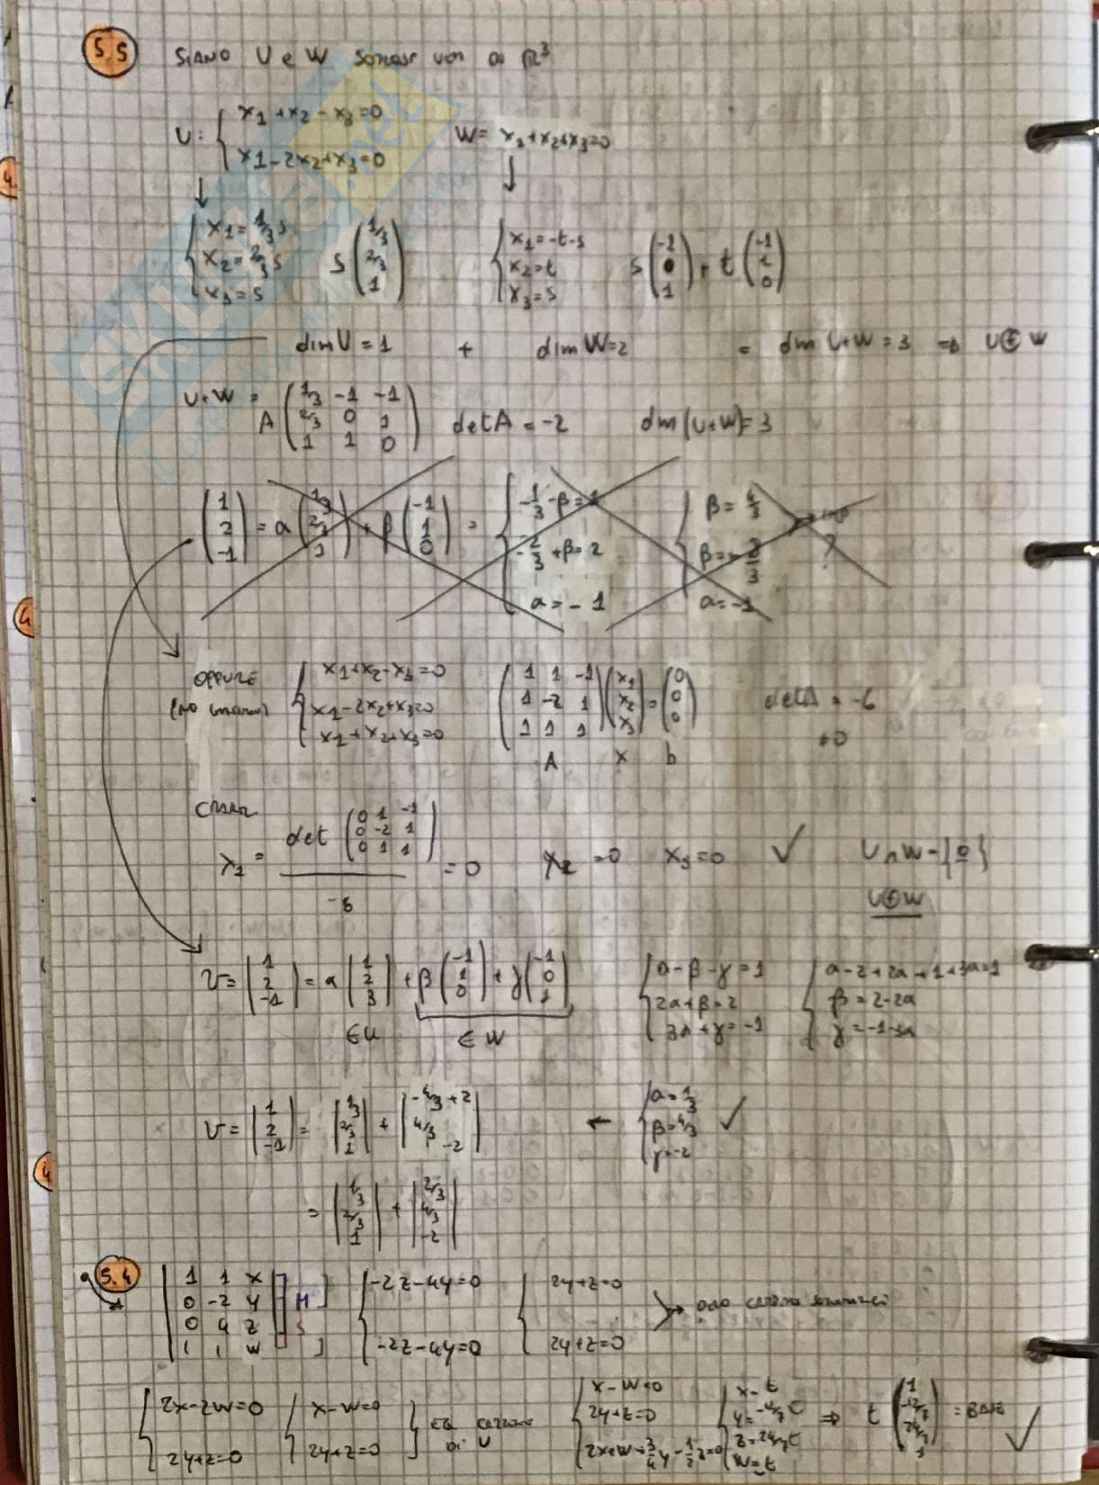 5.5 SIANO U e W SOTTOSP VETT DI R³
U: { x1 + x2 - x3 = 0
x1 - 2x2 + x3 = 0
W = x1 + x2 + x3 = 0
{ x1 = 1/3 s
x2 = 2/3 s
x3 = s
s (1/3 2/3 1)
{ x1 = -t-s
x2 = t
x3 = s
s (-1 0 1) + t (-1 1 0)
dim U = 1 + dim W = 2 = dim U+W = 3 ⇒ U ⊕ W
U+W = A (1/3 -1 -1
2/3 0 1
1 1 0) det A = -2 dim (U+W) = 3
(1 2 -1) = α (1/3 2/3 1) + β (-1 1 0) = { -1/3 - β = 1
-2/3 + β = 2
α = -1
{ β = 4/3
β = -2/3
α = -1
?
OPPURE { x1 + x2 - x3 = 0
x1 - 2x2 + x3 = 0
x1 + x2 + x3 = 0
(1 1 -1
1 -2 1
1 1 1) (x1 x2 x3) = (0 0 0)
A x b
det A = -6
≠0
CRAMER
x1 = det (0 1 -1
0 -2 1
0 1 1) / -6 = 0 x2 = 0 x3 = 0 ✓ U ∩ W = {0}
U ⊕ W
v = (1 2 -1) = α (1 2 3) + β (-1 1 0) + γ (-1 0 1)
∈ U ∈ W
{ α - β - γ = 1
2α + β = 2
3α + γ = -1
{ α - 2 + 2α + 1 + 3α = 1
β = 2 - 2α
γ = -1 - 3α
v = (1 2 -1) = (1/3 2/3 1) + (-4/3 + 2 4/3 -2) ← { α = 1/3
β = 4/3
γ = -2 ✓
= (1/3 2/3 1) + (2/3 4/3 -2)
5.4 | 1 1 x
0 -2 y
0 4 z
1 1 w
H
S
{ -2z - 4y = 0
-2z - 4y = 0
{ 2y + z = 0
2y + z = 0
{ 2x - 2w = 0
2y + z = 0
{ x - w = 0
2y + z = 0
} EQ CARTESIANE
DI U
{ x - w = 0
2y + z = 0
2x + w + 3/4 y - 1/2 z = 0
{ x = t
w = t
⇒ t = BASE ✓